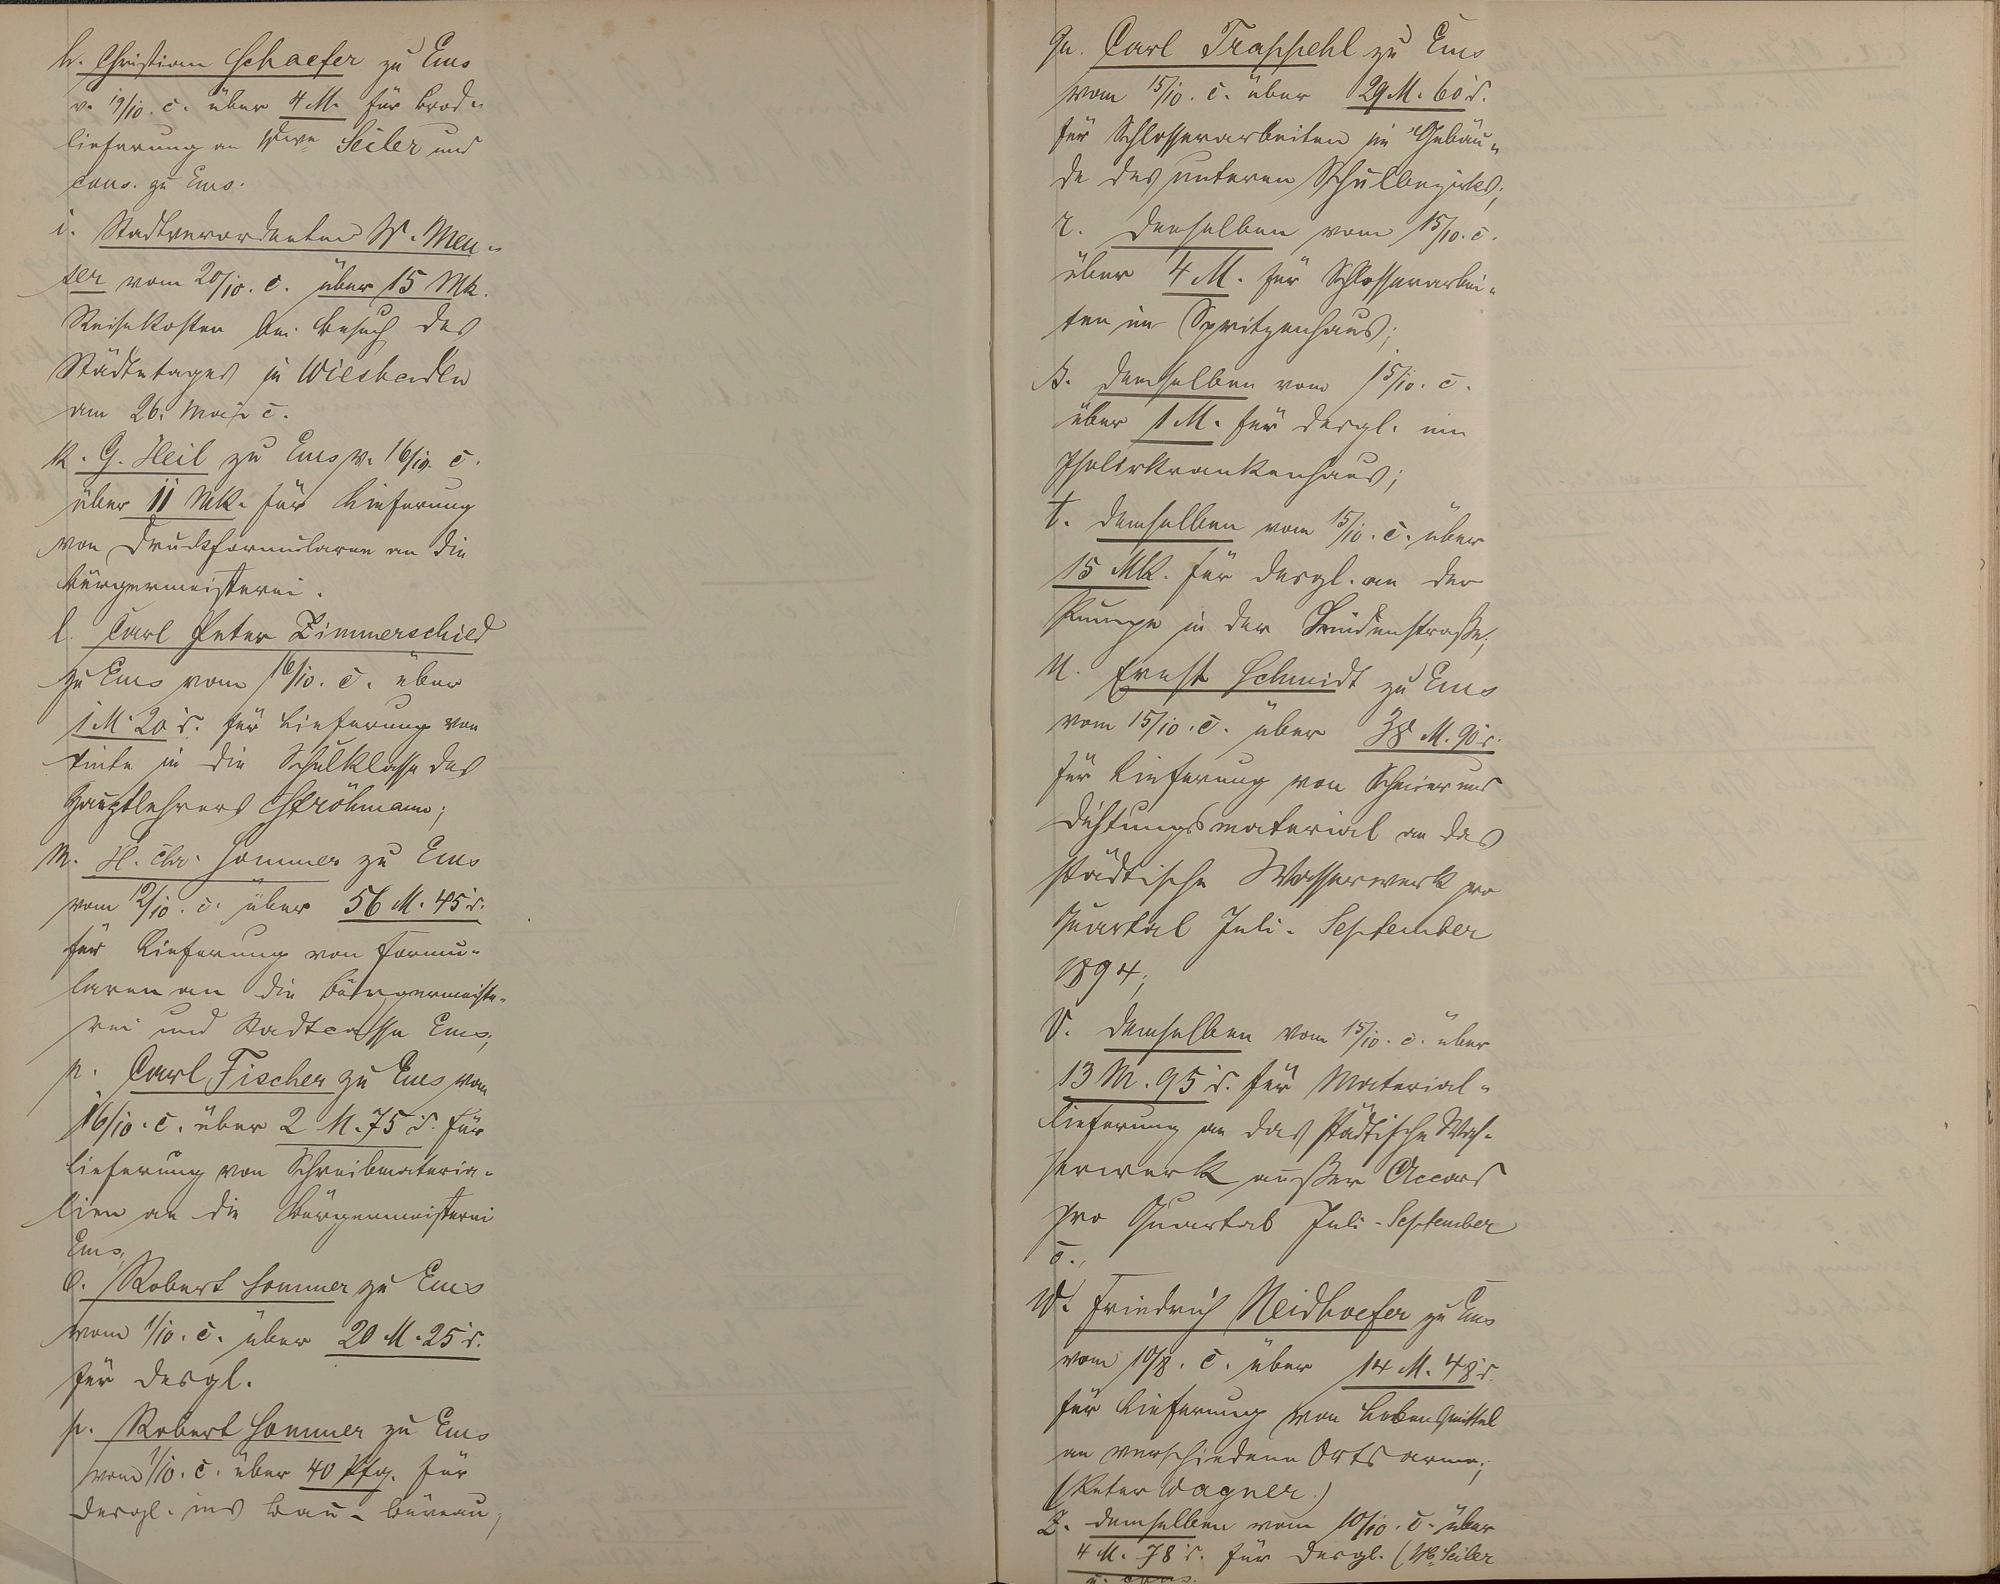 h. Christian Schaefer zu Ems
v. 19/10. c. über 4 M. für Brod-
lieferung an Wwe Seiler und
cons. zu Ems.
i. Stadtverordneten W. Meu-
ser vom 20/10. c. über 15 Mk.
Reisekosten bei Besuch des
Städtetages in Wiesbaden
am 26. Mai c.
k. G. Heil zu Ems v. 16/10. c.
über 11 Mk. für Lieferung
von Druckformularen an die
Bürgermeisterei.
l. Carl Peter Zimmerschied
zu Ems vom 16/10. c. über
1 M. 20 d. für Lieferung von
Tinte in die Schulklasse des
Hauptlehrers Ströhmann;
m. H. Chr. Sommer zu Ems
vom 12/10. c. über 56 M. 45 d.
für Lieferung von Formu-
laren an die Bürgermeiste-
rei und Stadtcasse Ems;
n. Carl Fischer zu Ems vom
16/10. c. über 2 M. 75 d. für
Lieferung von Schreibmateria-
lien an die Bürgermeisterei
Ems;
o. Robert Sommer zu Ems
vom 1/10. c. über 20 M. 25 d.
für desgl.
p. Robert Sommer zu Ems
vom 1/10. c. über 40 Pfg. für
desgl. ins Bau-Büreau;
q. Carl Trappehl zu Ems
vom 15/10. c. über 29 M. 60 d.
für Schlosserarbeiten im Gebäu-
de des unteren Schulbezirks;
r. demselben vom 15/10. c.
über 4 M. für Schlosserarbei-
ten im Spritzenhaus;
s. demselben vom 15/10. c.
über 1 M. für desgl. im
Isolirkrankenhaus;
t. demselben vom 15/10. c. über
15 Mk. für desgl. an der
Pumpe in der Lindenstraße;
u. Ernst Schmidt zu Ems
vom 15/10. c. über 38 M. 90 d.
für Lieferung von Schmier und
Dichtungsmaterial an das
städtische Wasserwerk pro
Quartal Juli - September
1894;
v. demselben vom 15/10. c. über
13 M. 95 d. für Material-
lieferung an das städtische Was-
serwerk außer Accord
pro Quartal Juli - September
c.;
w. Friedrich Neidhoefer zu Ems
vom 10/8. c. über 14 M. 48 d.
für Lieferung von Lebensmittel
an verschiedene Ortsarme;
(Peter Wagner.)
z. demselben vom 10/10. c. über
4 M. 78 d. für desgl. (Wb. Seiler
u. cons.